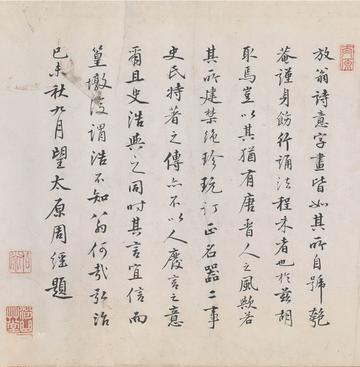 放翁詩意字畫皆如其所自號乾
菴謹身飭行誦法程朱者也於茲胡
取焉豈以其猶有唐晉人之風歟若
其所建禁絕珍玩訂正名器二事
史氏特著之傳亦不以人廢言之意
爾且史浩與之同時其言宜信而
篁墩後謂浩不知翁何哉弘治
己未秋九月望太原周經題